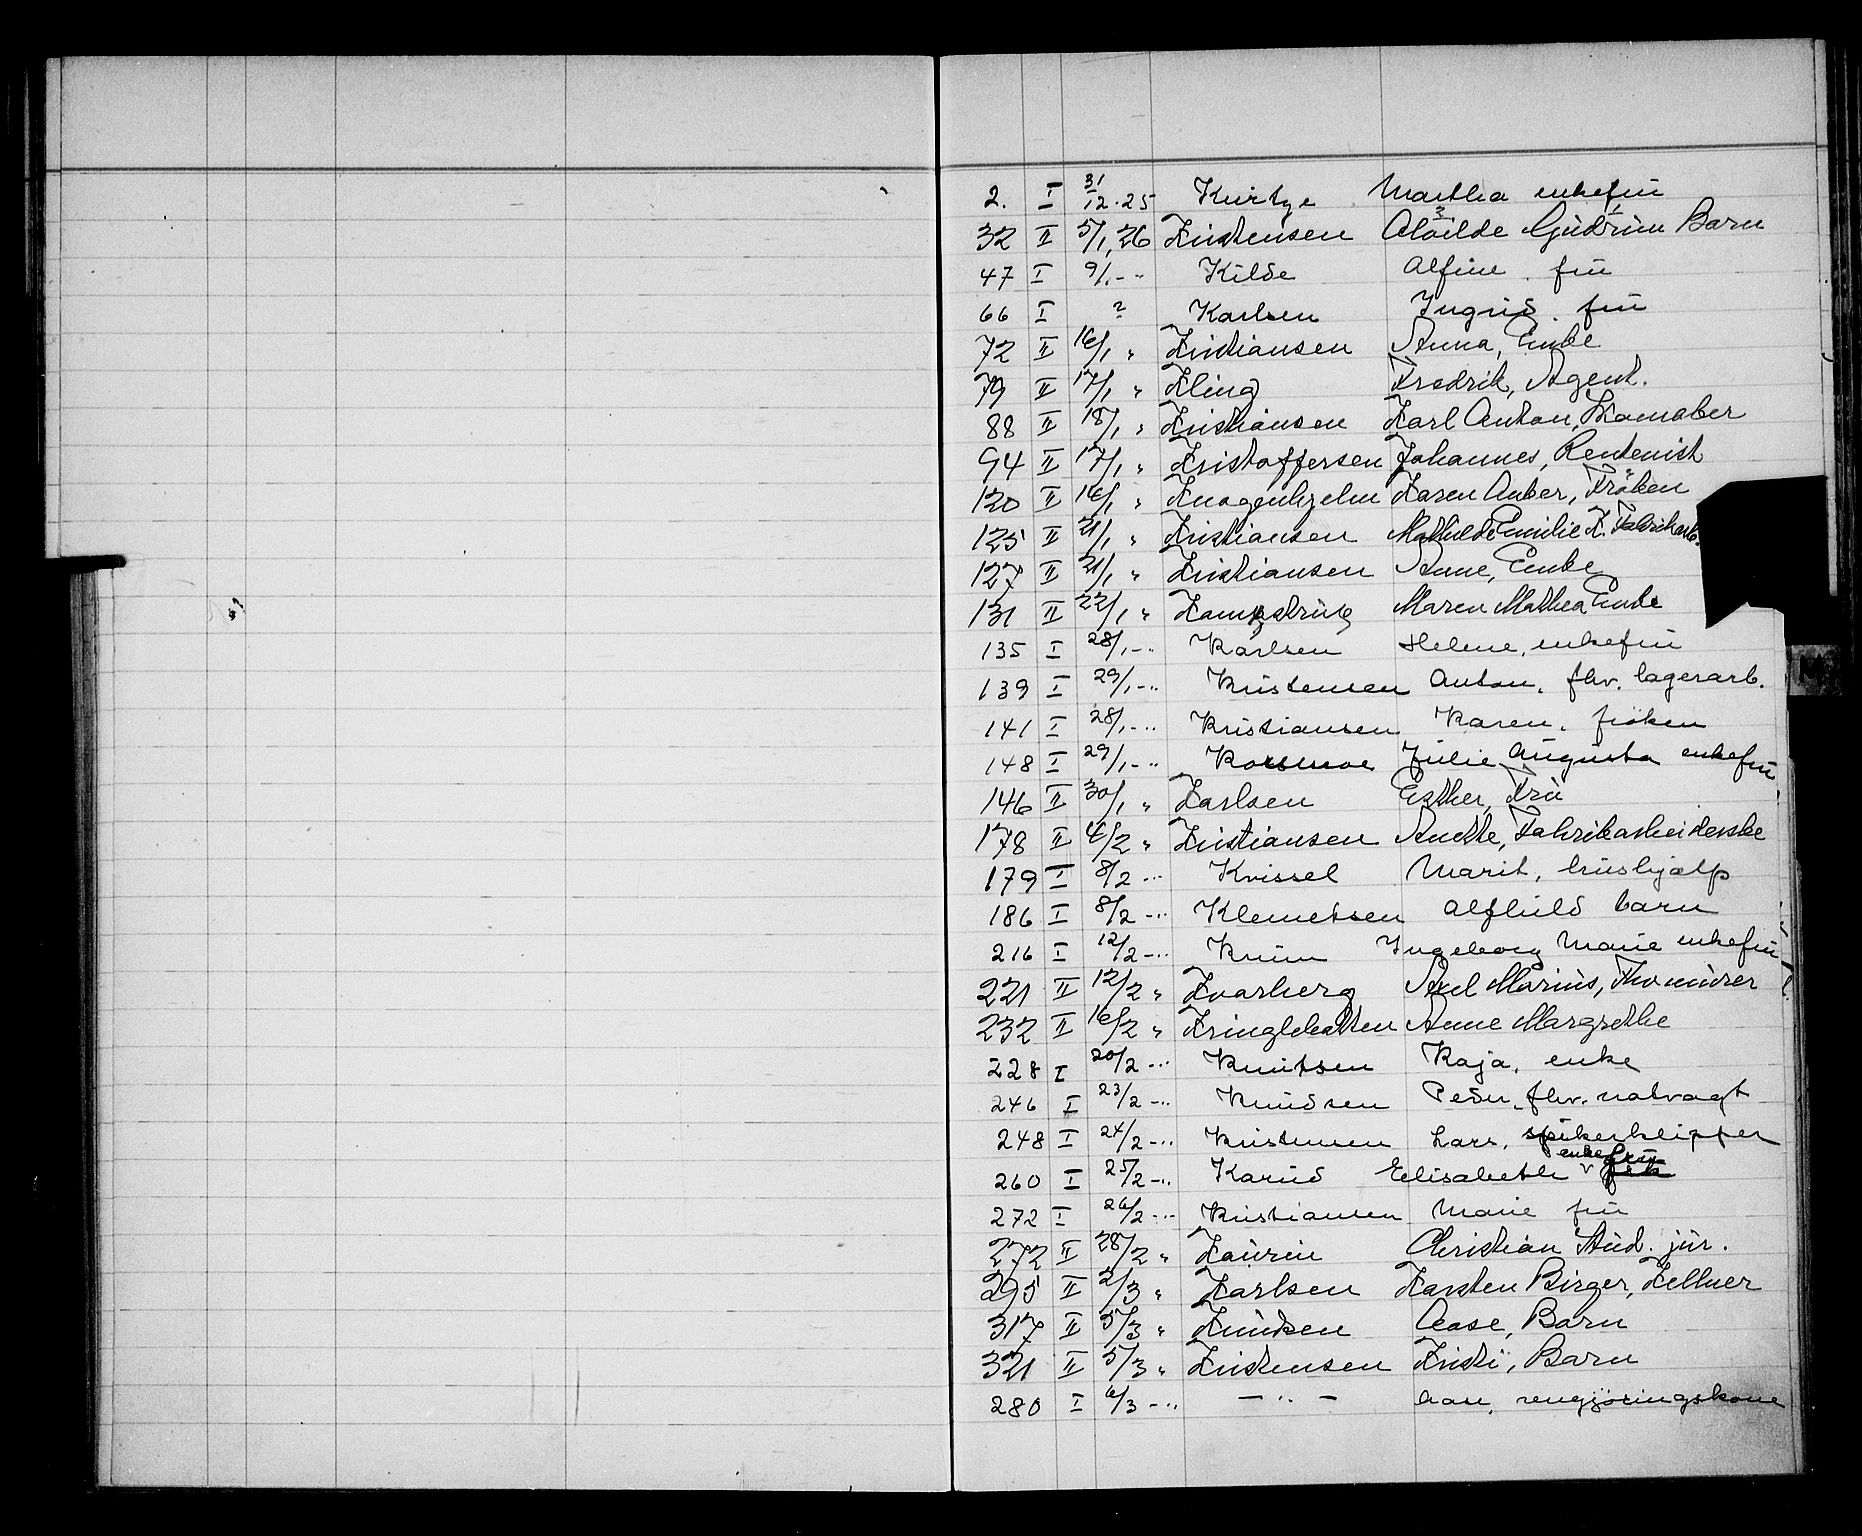 2. I 31/12.25 Kurtze Martha enkefru
32 II 5/1, 26 Kristensen Alvilde Gudrun Barn
47 I 9/1 - " Kilde Alfine. fru
66 I ? Karlsen Ingrid. fru
72 II 16/1 " Kristiansen Anna, Enke
79 II 17/1 " Kling Fredrik, Agent.
88 II 18/1 " Kristiansen Karl Anton, Skomaker
94 II 17/1 " Kristoffersen Johannes, Rentenist
120 II 16/1 " Knagenhjelm Karen Anker, Frøken
125 II 21/1 " Kristiansen Mathilde Emilie K. Fabrikarb.
127 II 21/1 " Kristiansen Anne, Enke
131 II 22/1 " Kampstrup Maren Mathea Enke
135 I 28/1 - " Karlsen Helene, enkefru
139 I 29/1 - " Kristensen Anton. fhv. lagerarb.
141 I 28/1 - " Kristiansen Karen. frøken
148 I 29/1 - " Korsmoe Julie Augusta enkefru
146 II 30/1 " Karlsen Esther, Fru
178 II 4/2 " Kristiansen Anette, Fabrikarbeiderske
179 I 8/2 - " Kvissel Marit, hushjælp
186 I 8/2 - " Klemetsen Alfhild barn
216 I 12/2 - " Krum Ingeborg Marie enkefru
221 II 12/2 " Kvarberg Axel Marius, Fhv murer
232 II 16/2 " Kringlebotten Anne Margrethe
228 I 20/2 - " Knutsen Kaja, enke
246 I 23/2 - " Knudsen Peder. fhv. natvagt
248 I 24/2 - " Kristensen Lars, spikerklipper
260 I 25/2 - " Karud Elisabeth enkefru
272 I 26/2 - " Kristiansen Marie fru
272 II 28/2 " Kaurin Christian Stud. jur.
295 II 2/3 " Karlsen Karsten Birger, Kellner
317 II 5/3 " Knudsen Aase, Barn
321 II 5/3 " Kristensen Kristi, Barn
280 I 6/3 - " - " - Aase, rengjøringskone